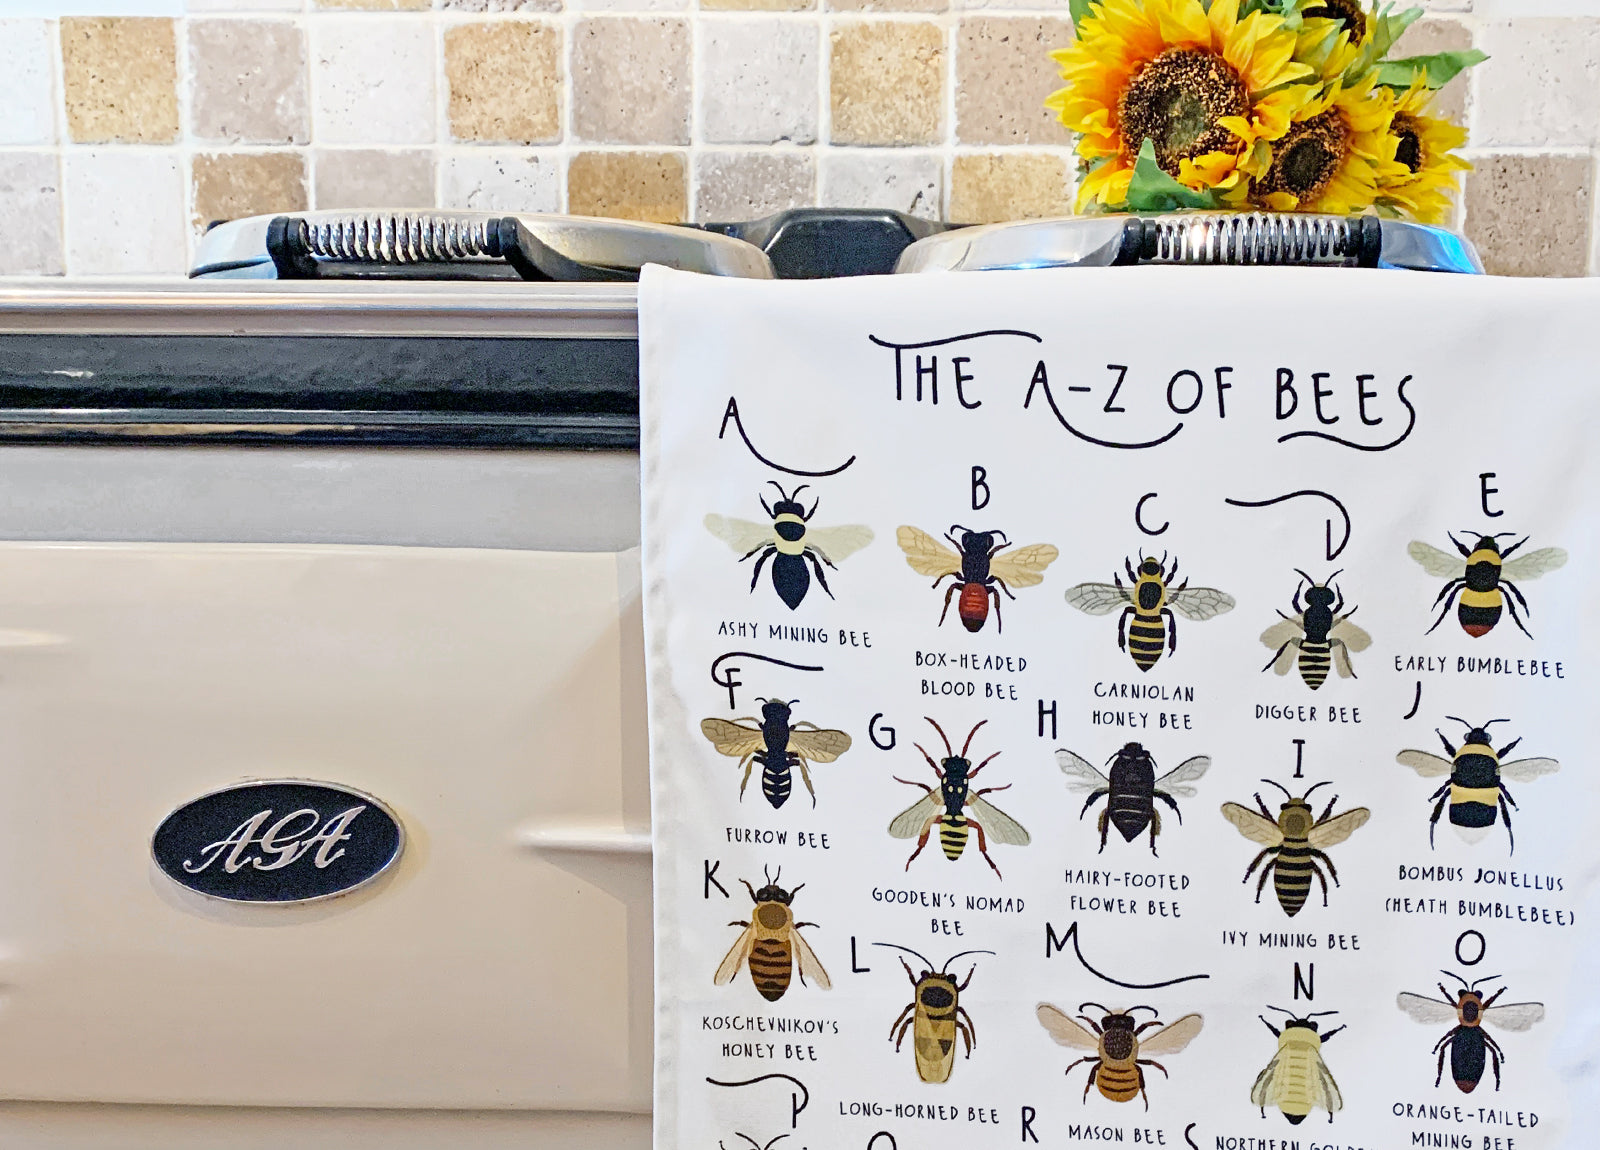 THE A-Z OF BEES
A
ASHY MINING BEE
B
BOX-HEADED
BLOOD BEE
C
CARNIOLAN
HONEY BEE
D
DIGGER BEE
E
EARLY BUMBLEBEE
F
FURROW BEE
G
GOODEN'S NOMAD
BEE
H
HAIRY-FOOTED
FLOWER BEE
I
IVY MINING BEE
J
BOMBUS JONELLUS
(HEATH BUMBLEBEE)
K
KOSCHEVNIKOV'S
HONEY BEE
L
LONG-HORNED BEE
M
MASON BEE
N
NORTHERN
O
ORANGE-TAILED
MINING BEE
P
R
S
AGA